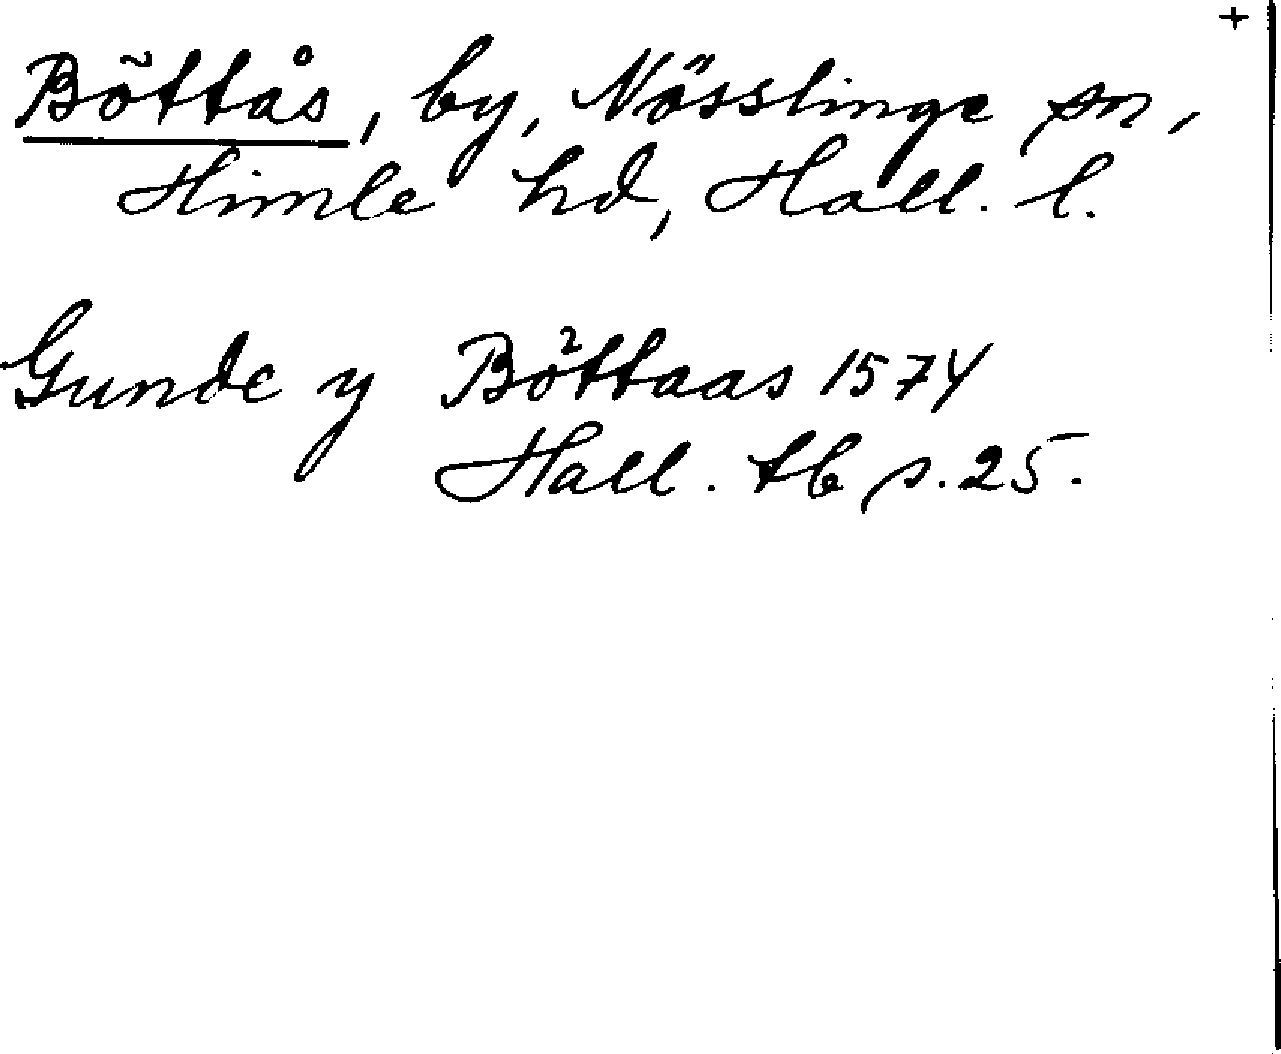 +
Böttås, by, Nösslinge sn,
Himle hd, Hall. l.
Gunde y Böttaas 1574
Hall. tb s. 25.